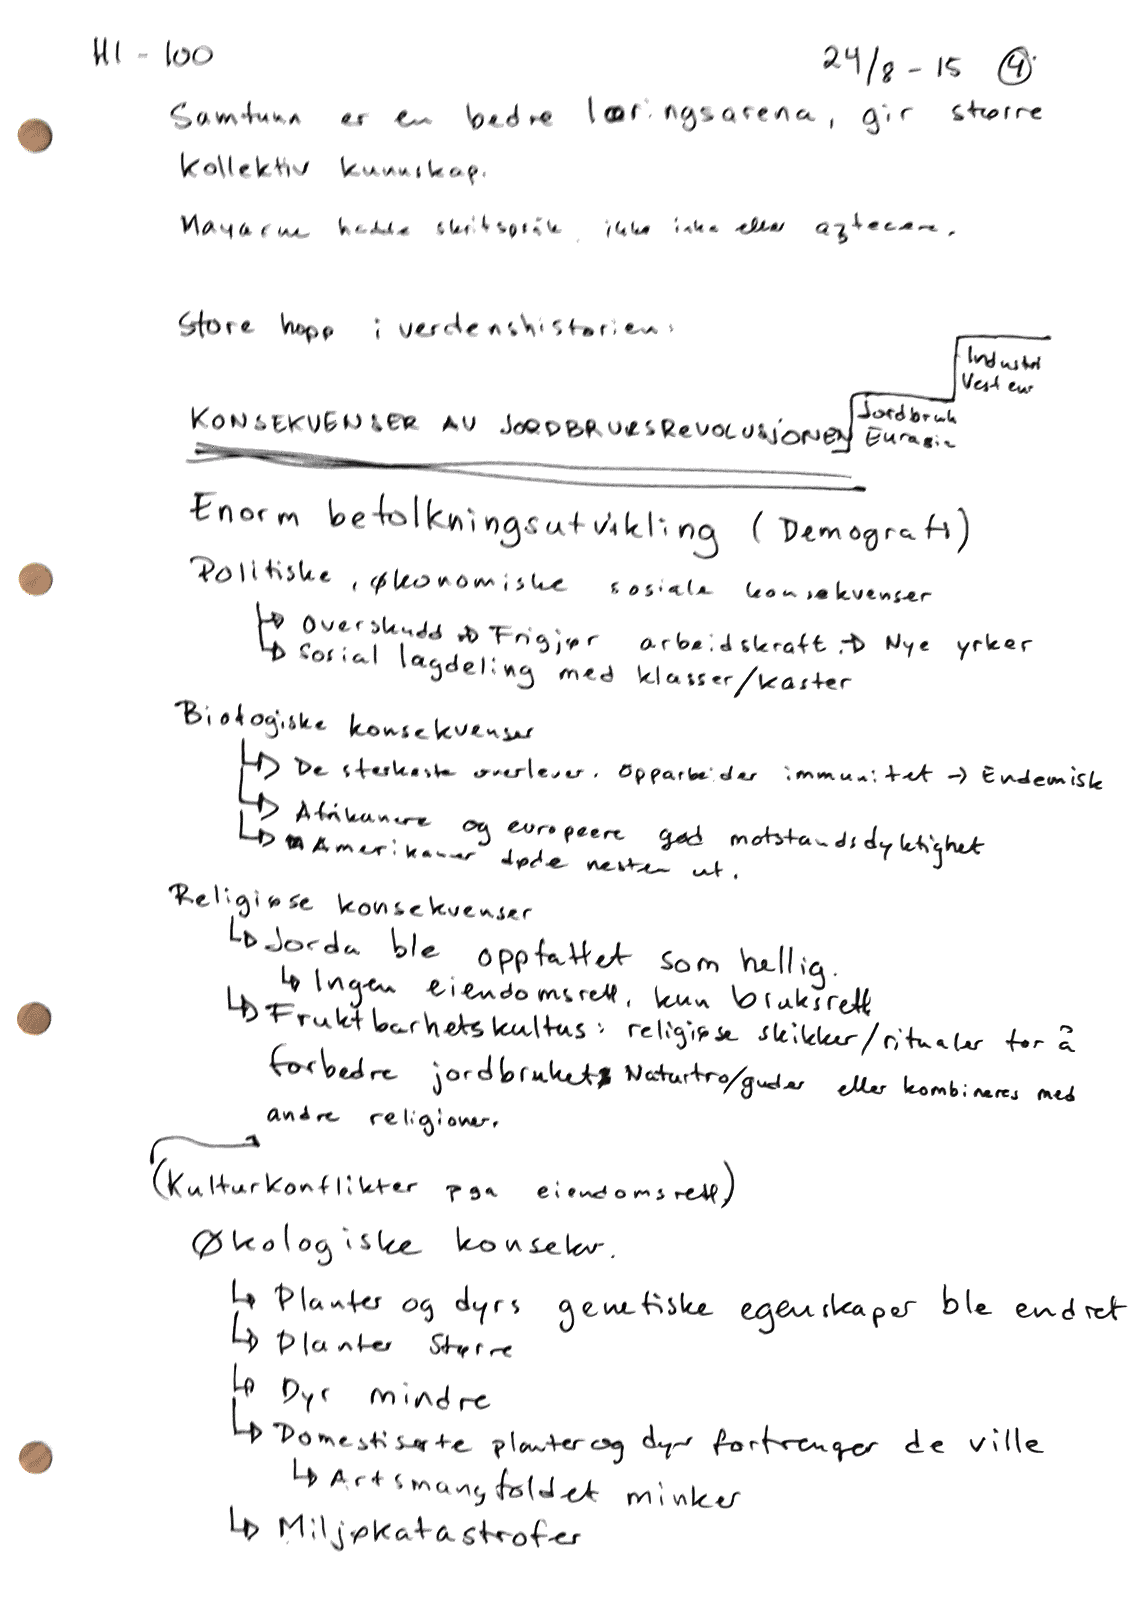 HI - 100
24/8 - 15 4
Samfunn er en bedre læringsarena, gir større
kollektiv kunnskap.
Mayaene hadde skriftspråk, ikke inka eller aztecere.
Store hopp i verdenshistorien:
Industri
Vest eur
Jordbruk
Eurasia
KONSEKVENSER AV JORDBRUKSREVOLUSJONEN
Enorm befolkningsutvikling (Demografi)
Politiske, økonomiske sosiale konsekvenser
↳ Overskudd → Frigjør arbeidskraft → Nye yrker
↳ Sosial lagdeling med klasser/kaster
Biologiske konsekvenser
↳ De sterkeste overlever. Opparbeider immunitet → Endemisk
↳ Afrikanere og europeere god motstandsdyktighet
↳ Amerikaner døde nesten ut.
Religiøse konsekvenser
↳ Jorda ble oppfattet som hellig.
↳ Ingen eiendomsrett, kun bruksrett
↳ Fruktbarhetskultus: religiøse skikker/ritualer for å
forbedre jordbruket. Naturtro/guder eller kombineres med
andre religioner.
(Kulturkonflikter pga eiendomsrett)
Økologiske konsekv.
↳ Planter og dyrs genetiske egenskaper ble endret
↳ Planter større
↳ Dyr mindre
↳ Domestiserte planter og dyr fortrenger de ville
↳ Artsmangfoldet minker
↳ Miljøkatastrofer